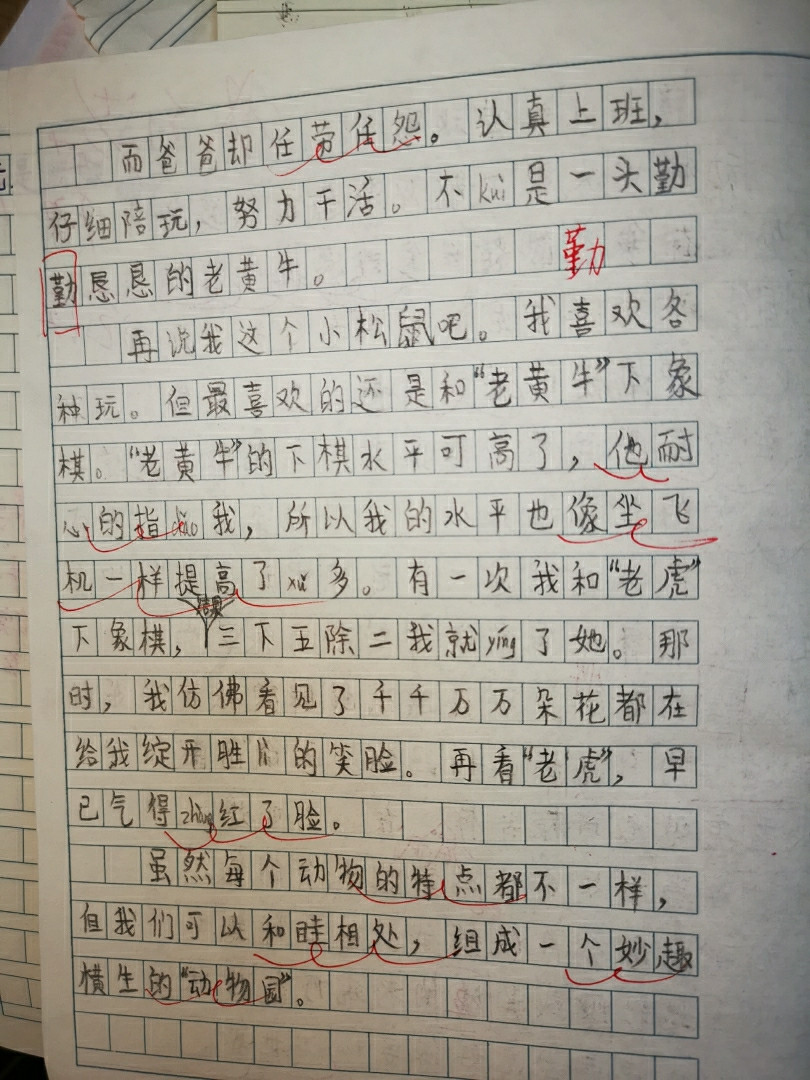 而爸爸却任劳任怨。认真上班，
仔细陪玩，努力干活。不kuì是一头勤
勤恳恳的老黄牛。
勤
再说我这个小松鼠吧。我喜欢各
种玩。但最喜欢的还是和“老黄牛”下象
棋。“老黄牛”的下棋水平可高了，他耐
心的指dǎo我，所以我的水平也像坐飞
机一样提高了xǔ多。有一次我和“老虎”
下象棋，结果三下五除二我就yíng了她。那
时，我仿佛看见了千千万万朵花都在
给我绽开胜lì的笑脸。再看“老虎”，早
已气得zhàng红了脸。
虽然每个动物的特点都不一样，
但我们可以和睦相处，组成一个妙趣
横生的“动物园”。